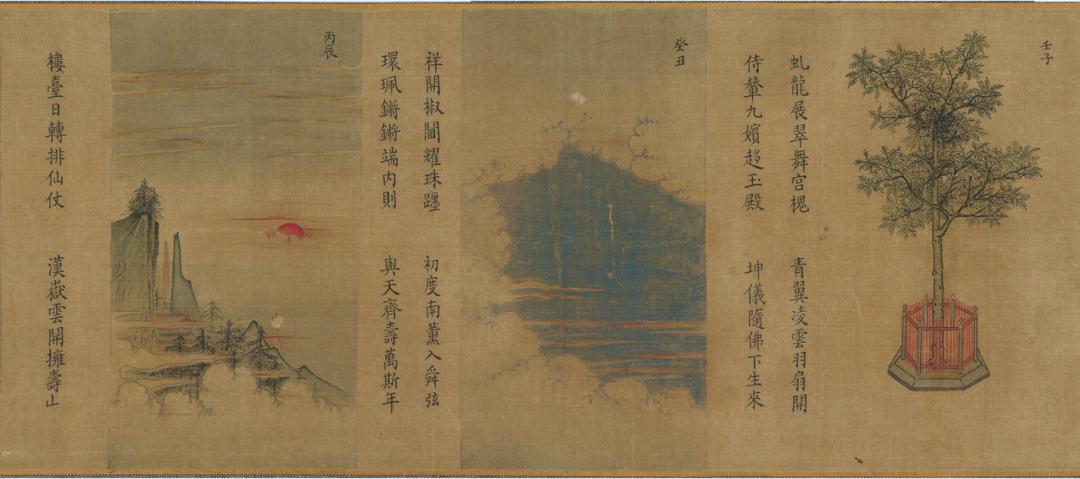 壬子
虬龍展翠舞宮槐 青翼凌雲羽扇開
侍輦九嬪趍玉殿 坤儀隨佛下生來
癸丑
祥開椒閫耀珠躔 初度南薰入舜弦
環珮鏘鏘端內則 與天齊壽萬斯年
丙辰
樓臺日轉排仙仗 漢嶽雲開擁壽山